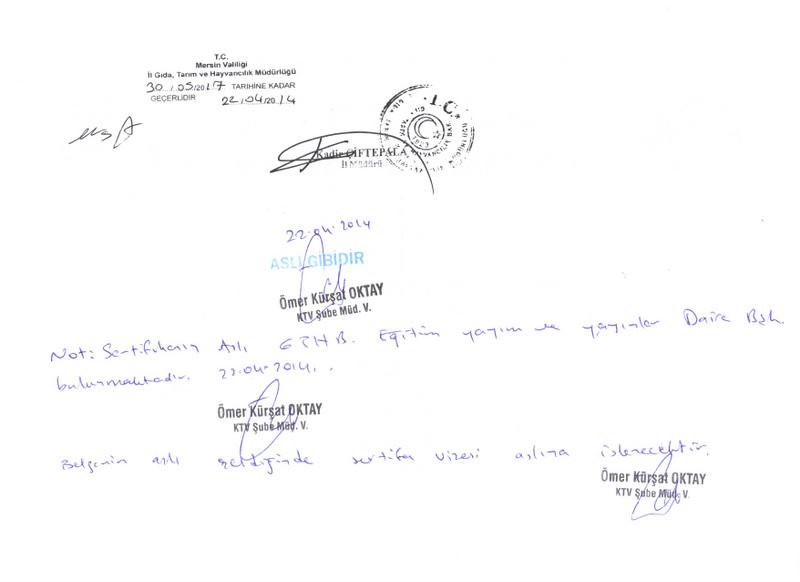 T.C.
Mersin Valiliği
İl Gıda, Tarım ve Hayvancılık Müdürlüğü
30/05/2017 TARIHINE KADAR
GEÇERLİDİR 22/04/2014
T.C.
Kadir ÇİFTEPALA
İl Müdürü
22.04.2014
ASLI GİBİDİR
Ömer Kürşat OKTAY
KTV Şube Müd. V.
Not: Sertifikanın Aslı GTHB. Eğitim yayım ve yayınlar Daire Bşk.
bulunmaktadır. 22.04.2014.
Ömer Kürşat OKTAY
KTV Şube Müd. V.
Belgenin aslı geldiğinde sertifika vizesi aslına işlenecektir.
Ömer Kürşat OKTAY
KTV Şube Müd. V.